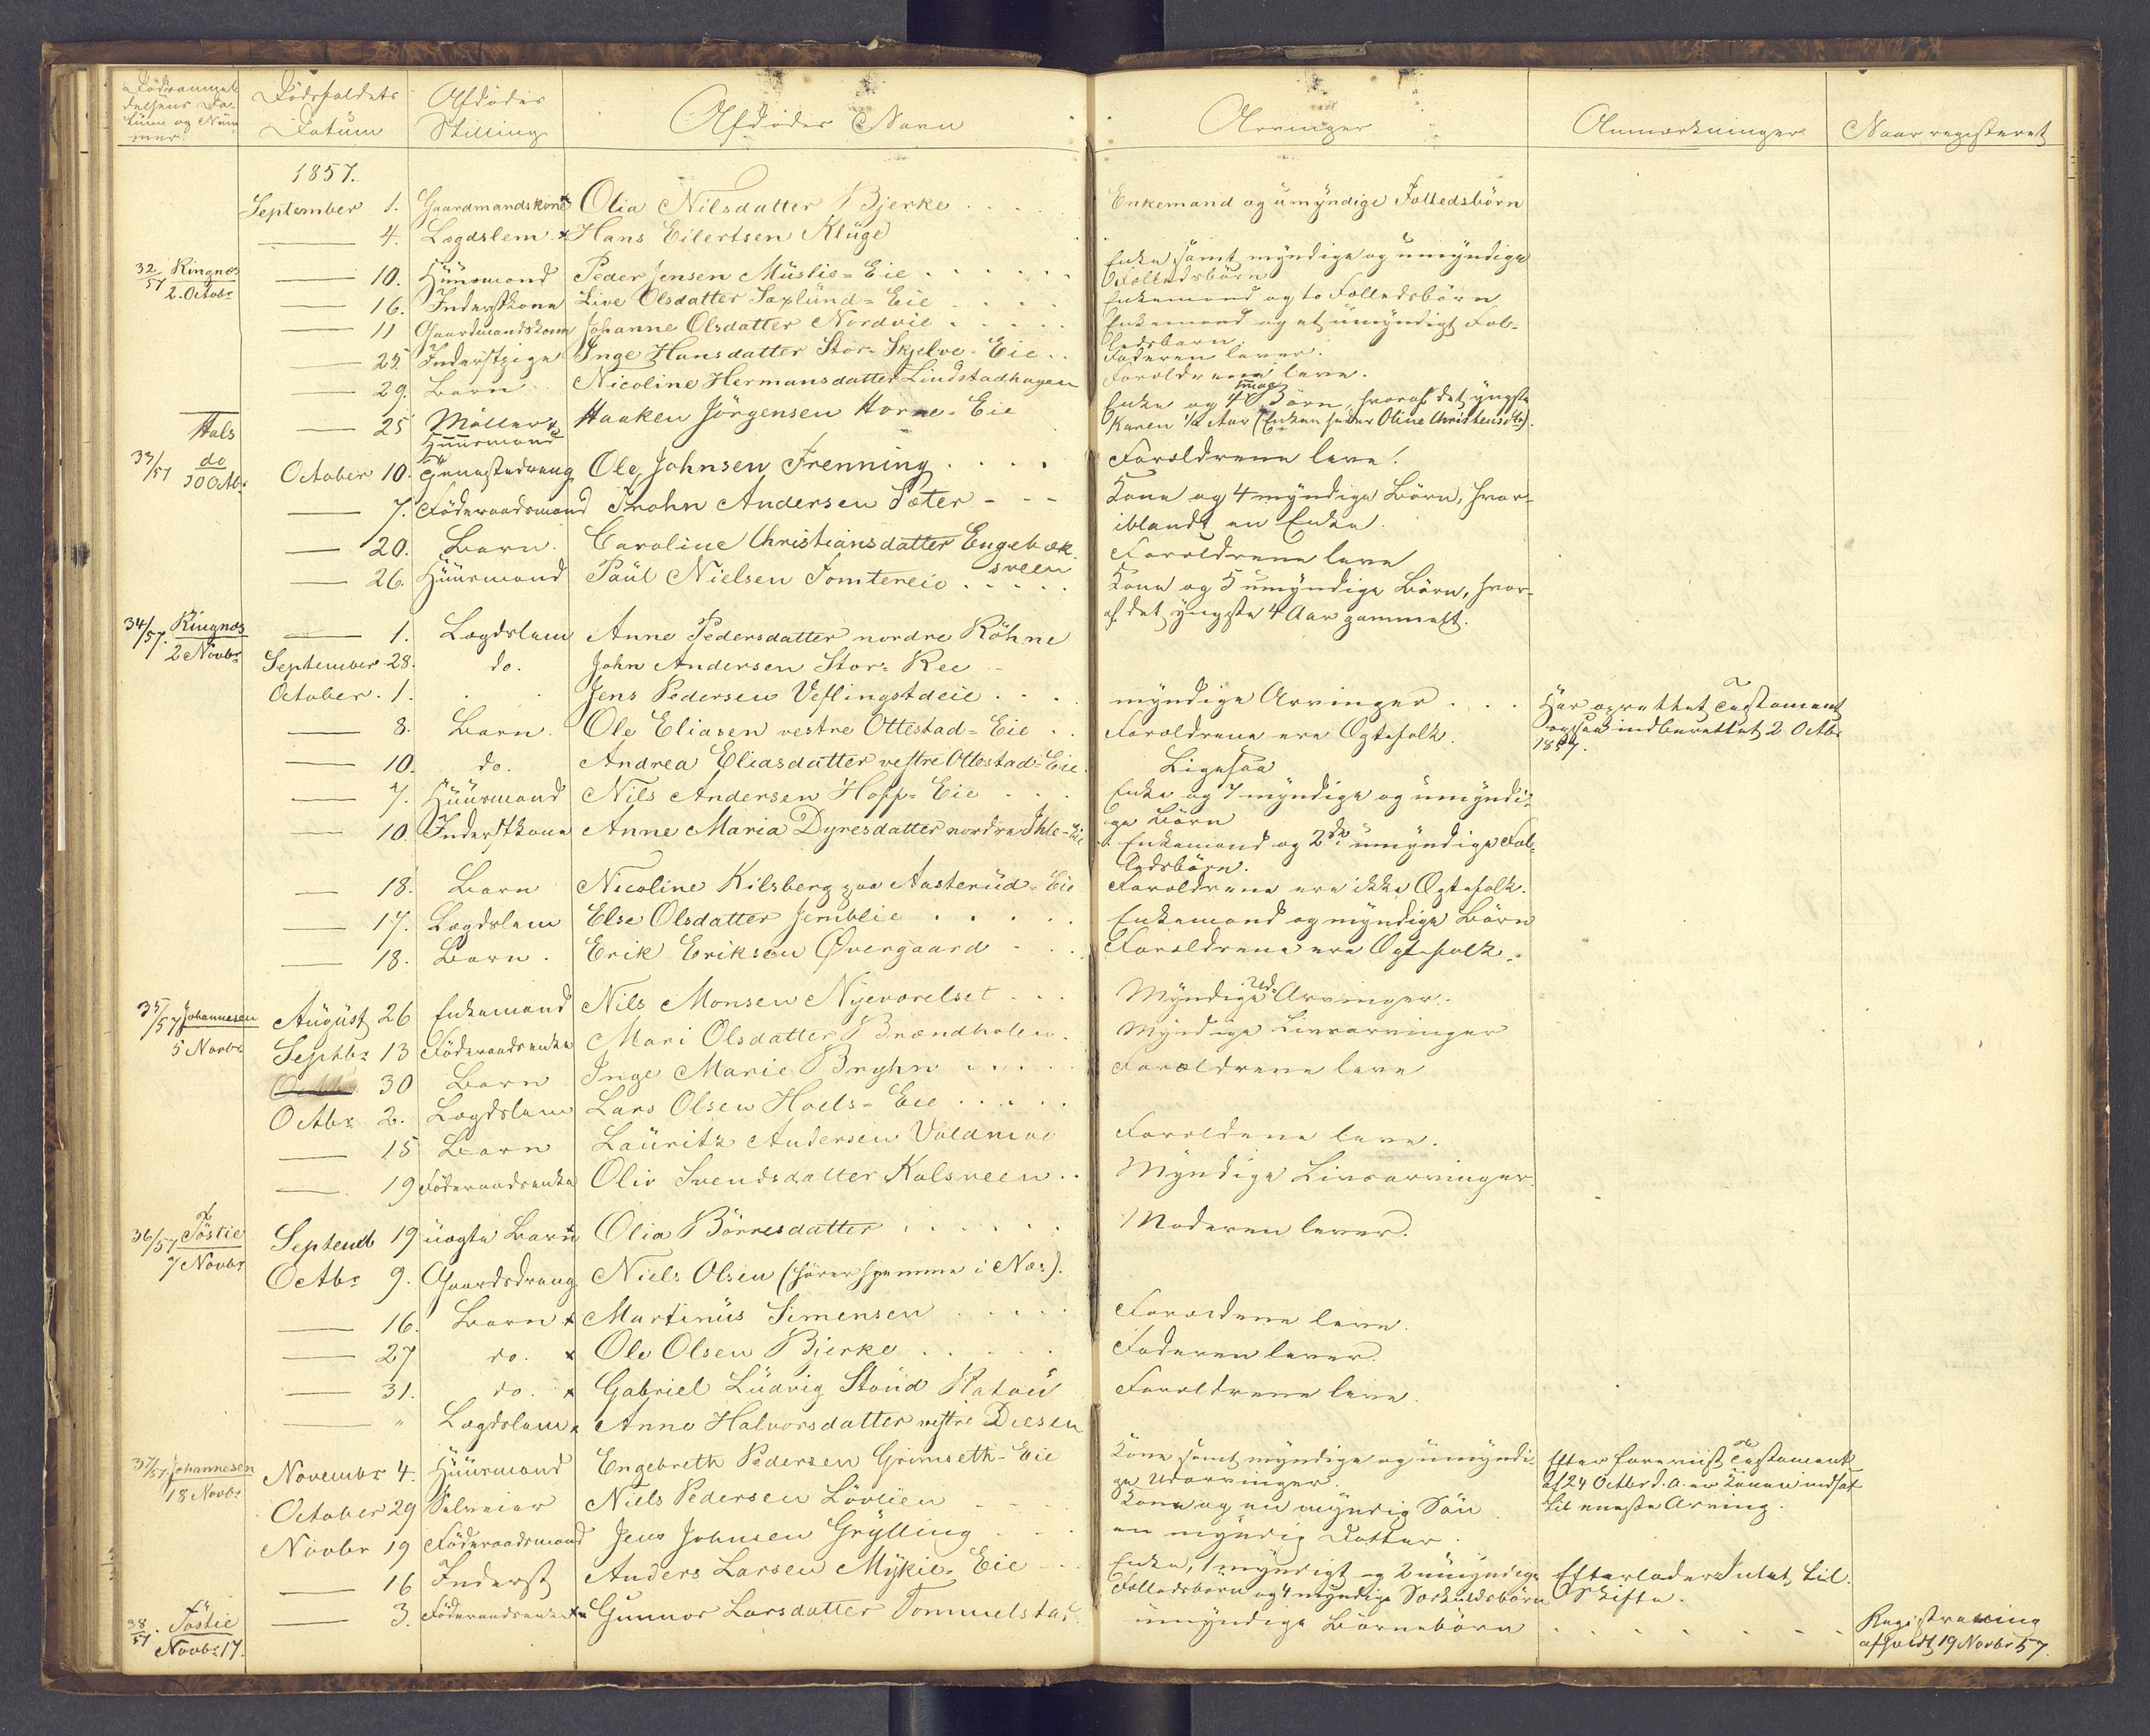 Dödsanmel
delsens Da-
tum og Num
mer.
Dödsfaldets
Datum
Afdödes
Stilling
Afdödes Navn
Arvinger
Anmærkninger
Naar registeret
1857.
September 1. Gaardmandskone x Olia Nilsdatter Bjerke . . . . Enkemand og umyndige Fælledsbörn
— 4. Lægdslem x Hans Eilertsen Klüge
32/57 Ringnes 2. Octobr
— 10. Huusmand Peder Jensen Müslie-Eie . . . . . . Enke samt myndige og umyndige
Fælledsbörn
— 16. Inderstkone Live Olsdatter Saxlünd-Eie . . . . Enkemand og to Fælledsbörn
— 11 Gaardmandskone Johanne Olsdatter Nordvie . . . . . Enkemand og et umyndigt Fæl-
ledsbarn.
— 25. Inderstpige Inge Hansdatter Stor-Skjelve-Eie . . Faderen lever.
— 29. Barn Nicoline Hermansdatter Lindstadhagen Forældrene leve.
— 25 Möller & Huusmand Haaken Jörgensen Horne-Eie Enke og 4 umge Börn, hvoraf det yngste
Karen 1/2 Aar (Enken heder Oline Christensdtr).
Hals
33/57 do 30 Octb.
October 10. Tjenestedreng Ole Johnsen Frenning . . . . Forældrene leve.
— 7. Föderaadsmand Trohn Andersen Sæter - - - Kone og 4 myndige Börn, hvor-
iblandt en Enke.
— 20. Barn. Caroline Christiansdatter Engebæk
sveen Forældrene leve
— 26. Huusmand Paül Nielsen Tomtereie . . . . . Kone og 5 umyndige Börn, hvor-
af det yngste 4 Aar gammelt.
34/57. Ringnes 2 Novbr
— 1. Lægdslem Anne Pedersdatter nordre Röhne
September 28. do. John Andersen Stor-Ree -
October. 1. . . Jens Pedersen Veflingstdeie . . . . myndige Arvinger . . . Har oprettet Testament
ogsaa indberettet 2 Octbr
1857.
— 8. Barn. Ole Eliasen vestre Ottestad-Eie . . Forældrene ere Ægtefolk.
— 10. do. Andrea Eliasdatter vestre Ottestad-Eie. Ligesaa
— 7. Huusmand Nils Andersen Hoff-Eie - . . Enke og 7 myndige og umyndi-
ge Börn
— 10. Inderstkone Anne Maria Dyresdatter nordre Ihle-Eie Enkemand og 2de umyndige Fæl-
ledsbörn.
— 18. Barn Nicoline Kilsberg paa Aasterüd-Eie Forældrene ere ikke Ægtefolk.
— 17. Lægdslem Else Olsdatter Jemblie . . . . . Enkemand og myndige Börn
— 18. Barn. Erik Eriksen Övergaard - . . Forældrene ere Ægtefolk.
35/57 Johannesen 5 Novbr
August 26 Enkemand Nils Monsen Nyeværelset - . . Myndige Ud-Arvinger.
Septbr 13 Föderaadsenke Mari Olsdatter Brændholen . Myndige Livsarvinger
30 Barn Inge Marie Bryhn . . . . . Forældrene leve
Octbr 2. Lægdslem Lars Olsen Hoels-Eie . . . . .
— 15 Barn Lauritz Andersen Voldmoe Forældrene leve.
— 19 Föderaadsenke Oliv Svendsdatter Kalsveen . . Myndige Livsarvinger.
36/57 Töstie 7 Novbr
Septemb 19 uægte Barn x Olia Börresdatter . . . . . . Moderen lever.
Octbr 9. Gaardsdreng Niels Olsen (hörer hjemme i Næs).
— 16. Barn x Martinüs Simensen . . . . . Forældrene leve.
— 27 do. x Ole Olsen Bjerke . . . . . Faderen lever.
— 31. do. x Gabriel Lüdvig Stöüd Platoü Forældrene leve.
— " Lægdslem x Anne Halvorsdatter vestre Diesen
37/57. Johannesen 18 Novbr
Novembr 4. Huusmand Engebreth Pedersen Grimseth-Eie Kone samt myndige og umyndi-
ge Udarvinger. Efter foreviist Testament
af 24 Octbr d. A. er Konen indsat
til eneste Arving.
October 29 Selveier Niels Pedersen Lövlien - - - Kone og en myndig Sön
Novbr 19 Föderaadsmand Jens Johnsen Grylling . - - en myndig Datter.
— 16 Inderst Anders Larsen Mykie-Eie - . . Enke, 1 myndigt og 2 umyndige
Fælledsbörn og 4 myndige Særkuldsbörn Efterlader Intet til
Skifte.
38/57. Töstie Novbr 17.
— 3. Föderaadsenke x Gunnor Larsdatter Tommelstad umyndige Börnebörn . . . . . . Registrering
afholdt 19 Novbr 57.